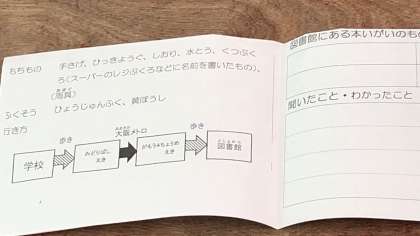 もちもの 手さげ、ひっきようぐ、しおり、水とう、くつぶく
ろ(スーパーのレジぶくろなどに名前を書いたもの)、
ふくそう ひょうじゅんふく、黄ぼうし
行き方
歩き
おおさか
大阪メトロ
歩き
学校
みどりばし
えき
がもう4ちょうめ
えき
としょかん
図書館
図書館にある本いがいのもの
聞いたこと・わかったこと